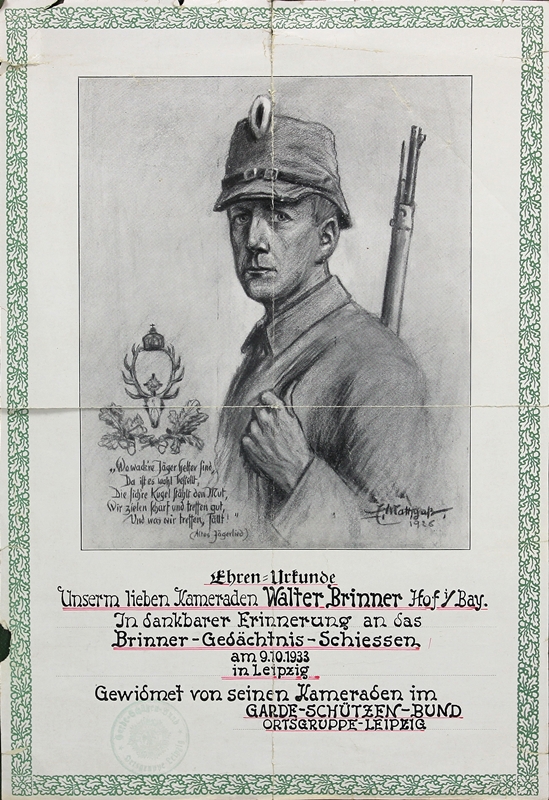 „Wo wackre Jäger Helfer sind,
Da ist es wohl bestellt,
Die sichre Kugel stählt den Mut,
Wir zielen scharf und treffen gut,
Und was wir treffen, fällt!"
(Altes Jägerlied)
1926
Ehren=Urkunde
Unserm lieben Kameraden Walter Brinner Hof i/Bay.
In dankbarer Erinnerung an das
Brinner-Gedächtnis-Schiessen,
am 9.10.1933
in Leipzig
Gewidmet von seinen Kameraden im
GARDE-SCHÜTZEN-BUND
ORTSGRUPPE-LEIPZIG